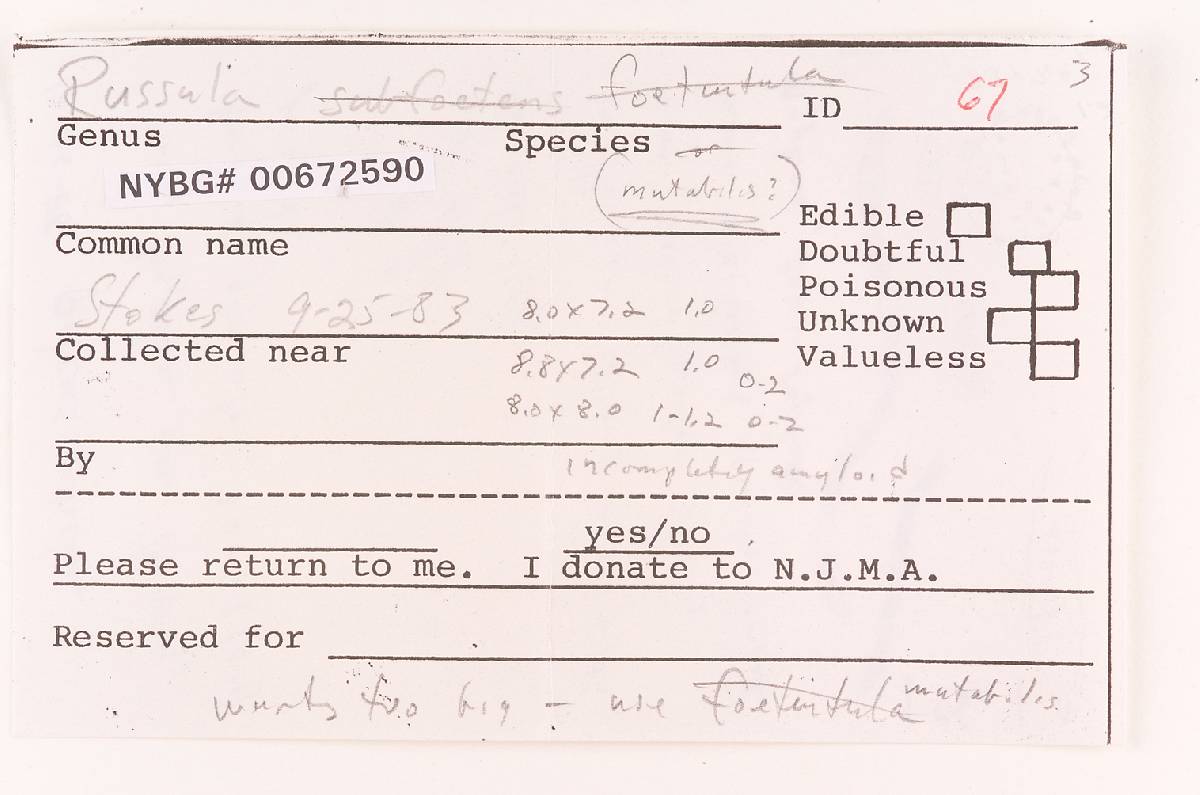 3
Russula subfoetens foetentula ID 67
Genus Species or
NYBG# 00672590
(mutabilis?)
Edible
Common name
Doubtful
Poisonous
Stokes 9-25-83 8.0x7.2 1.0
Unknown
Collected near
Valueless
8.8x7.2 1.0 0-2
8.0x8.0 1-1.2 0-2
By
incompletely amyloid
yes/no
Please return to me. I donate to N.J.M.A.
Reserved for
warts too big - use foetentula mutabilis.